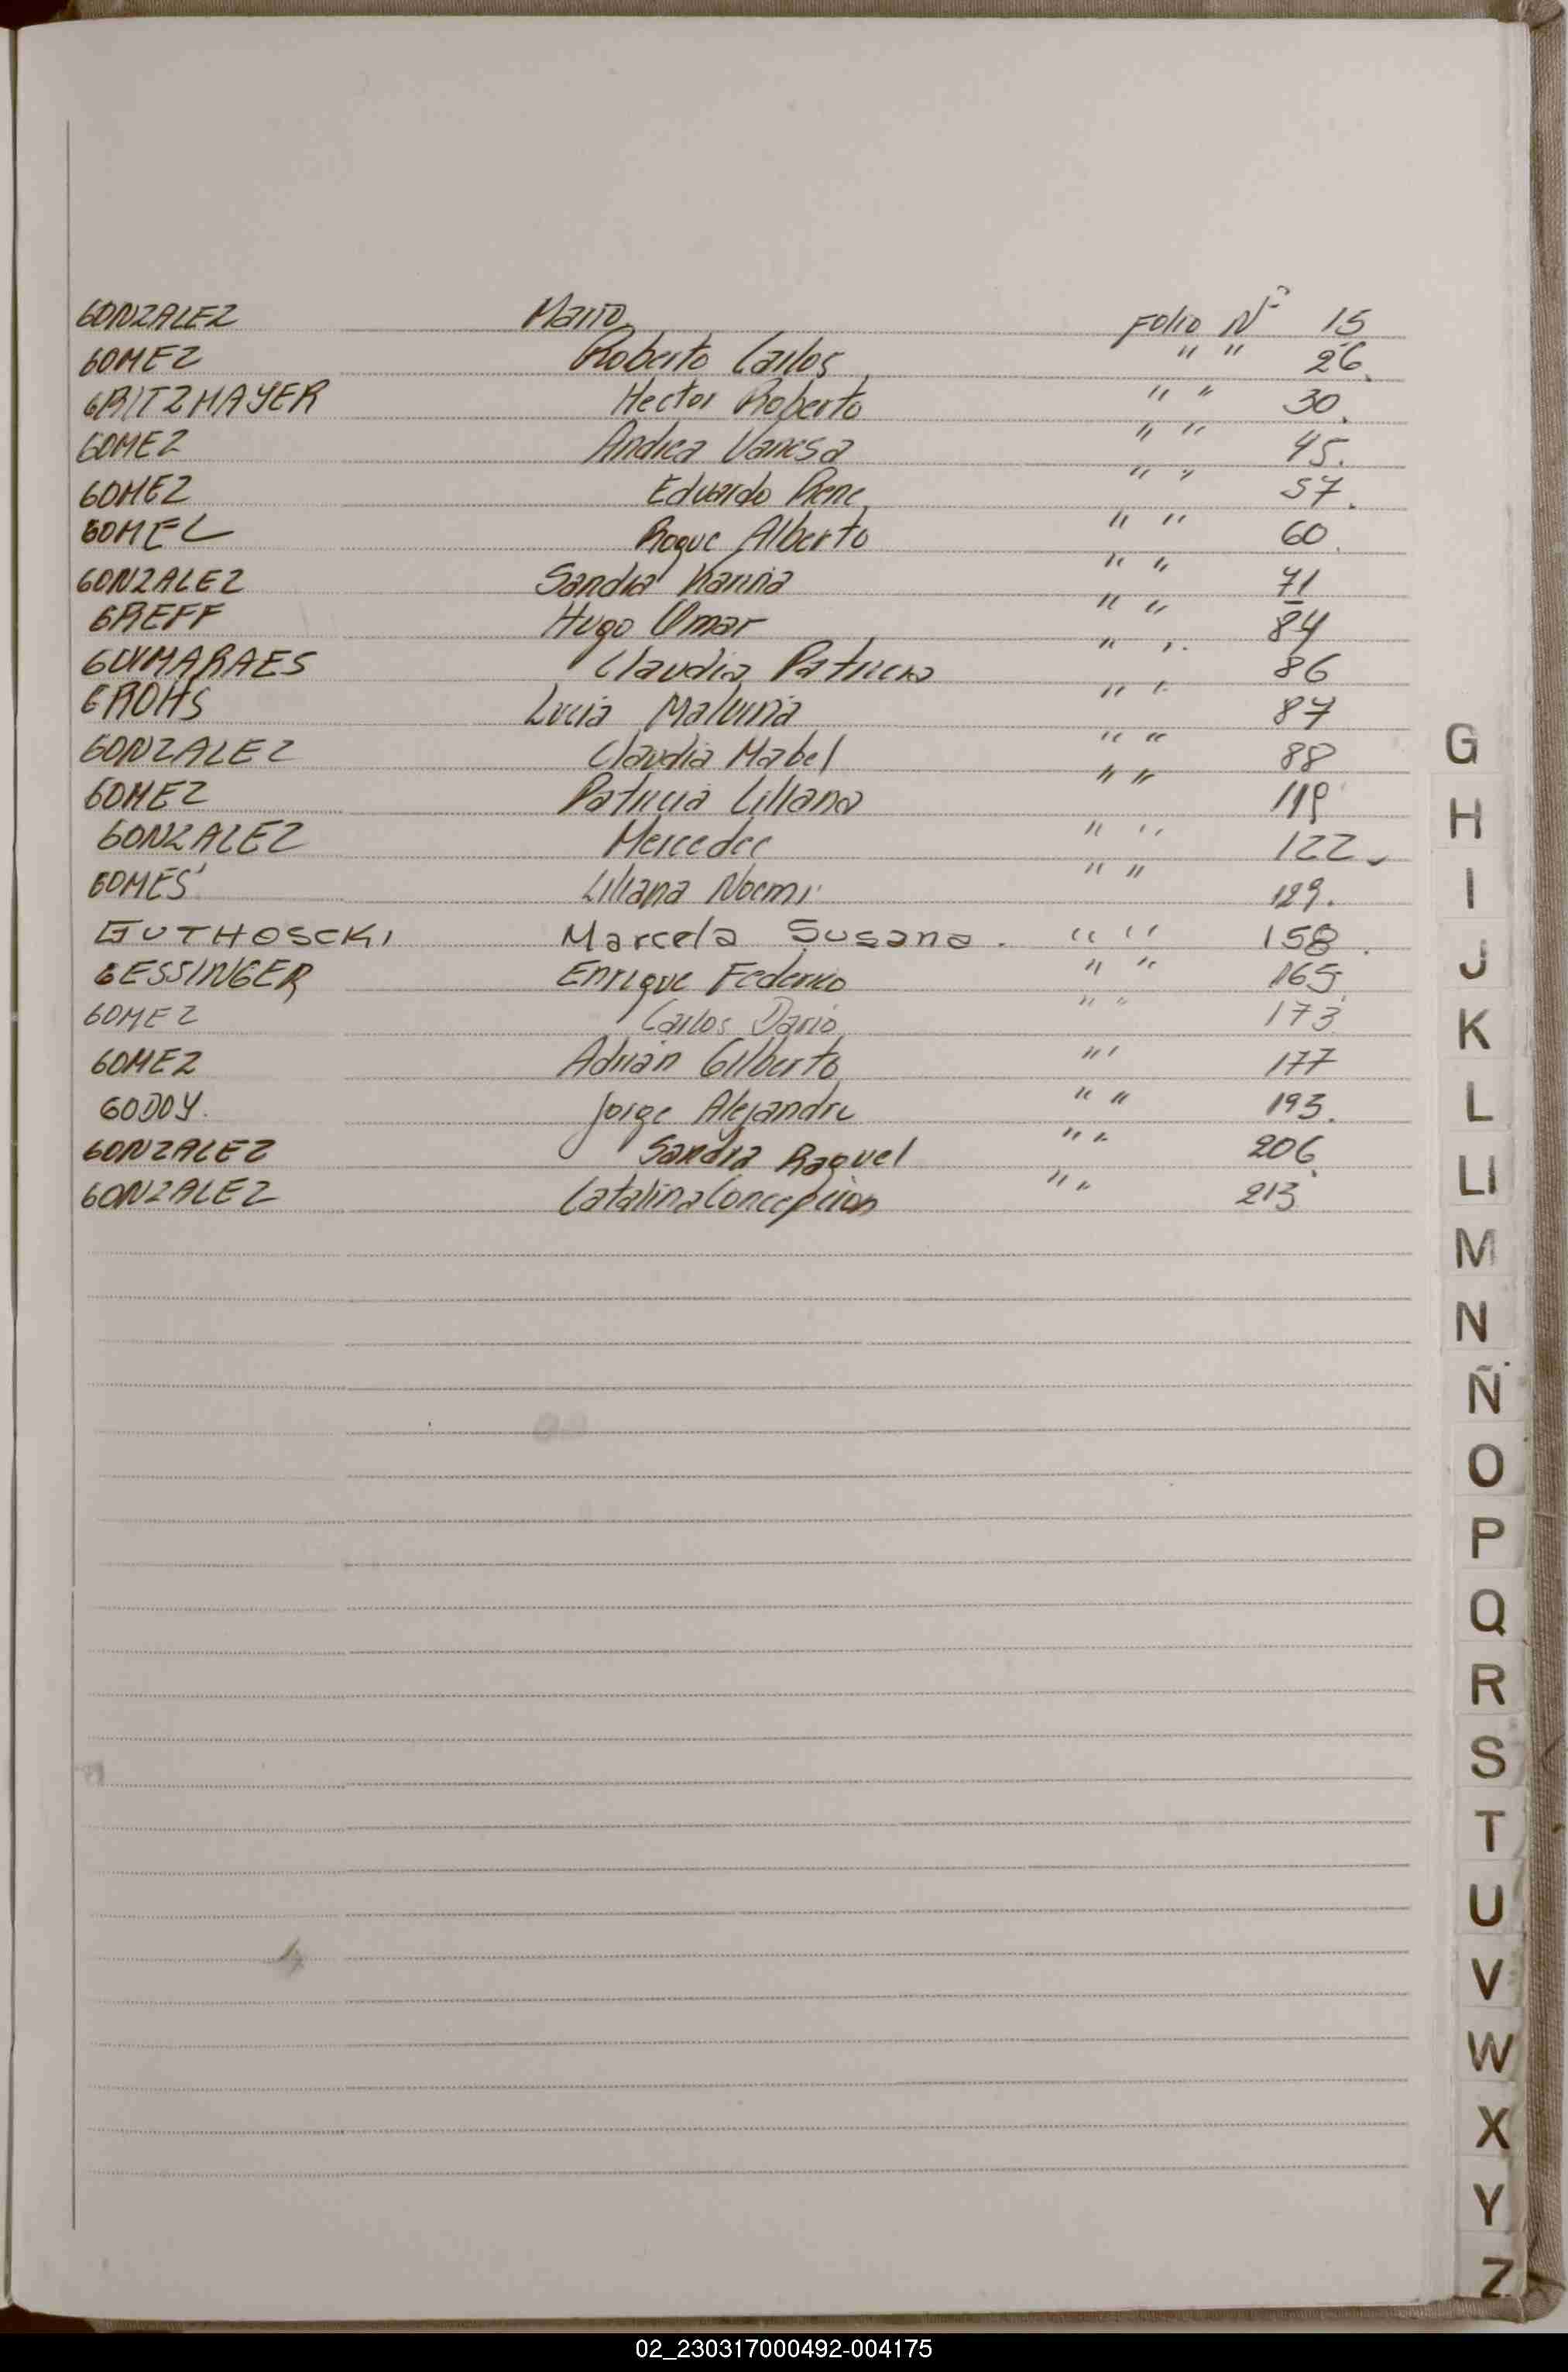 GONZALEZ Mario Folio Nº 15
GOMEZ Roberto Carlos " " 26.
GRITZMAYER Hector Roberto " " 30.
GOMEZ Andrea Vanesa " " 45.
GOMEZ Eduardo Rene " " 57.
GOMEZ Roque Alberto " " 60.
GONZALEZ Sandra Karina " " 71
GREFF Hugo Omar " " 84
GUIMARAES Claudia Patricia " " 86
GROHS Lucia Malvina " " 87
GONZALEZ Claudia Mabel " " 88
GOMEZ Patricia Liliana " " 119
GONZALEZ Mercedes " " 122
GOMES Liliana Noemi " " 129.
GUTHOSCKI Marcela Susana. " " 158.
GESSINGER Enrique Federico " " 165
GOMEZ Carlos Dario " " 173
GOMEZ Adrian Gilberto " " 177
GODOY. Jorge Alejandro " " 193.
GONZALEZ Sandra Raquel " " 206.
GONZALEZ Catalina Concepcion " " 213
G
H
I
J
K
L
Ll
M
N
Ñ
O
P
Q
R
S
T
U
V
W
X
Y
Z
02_230317000492-004175